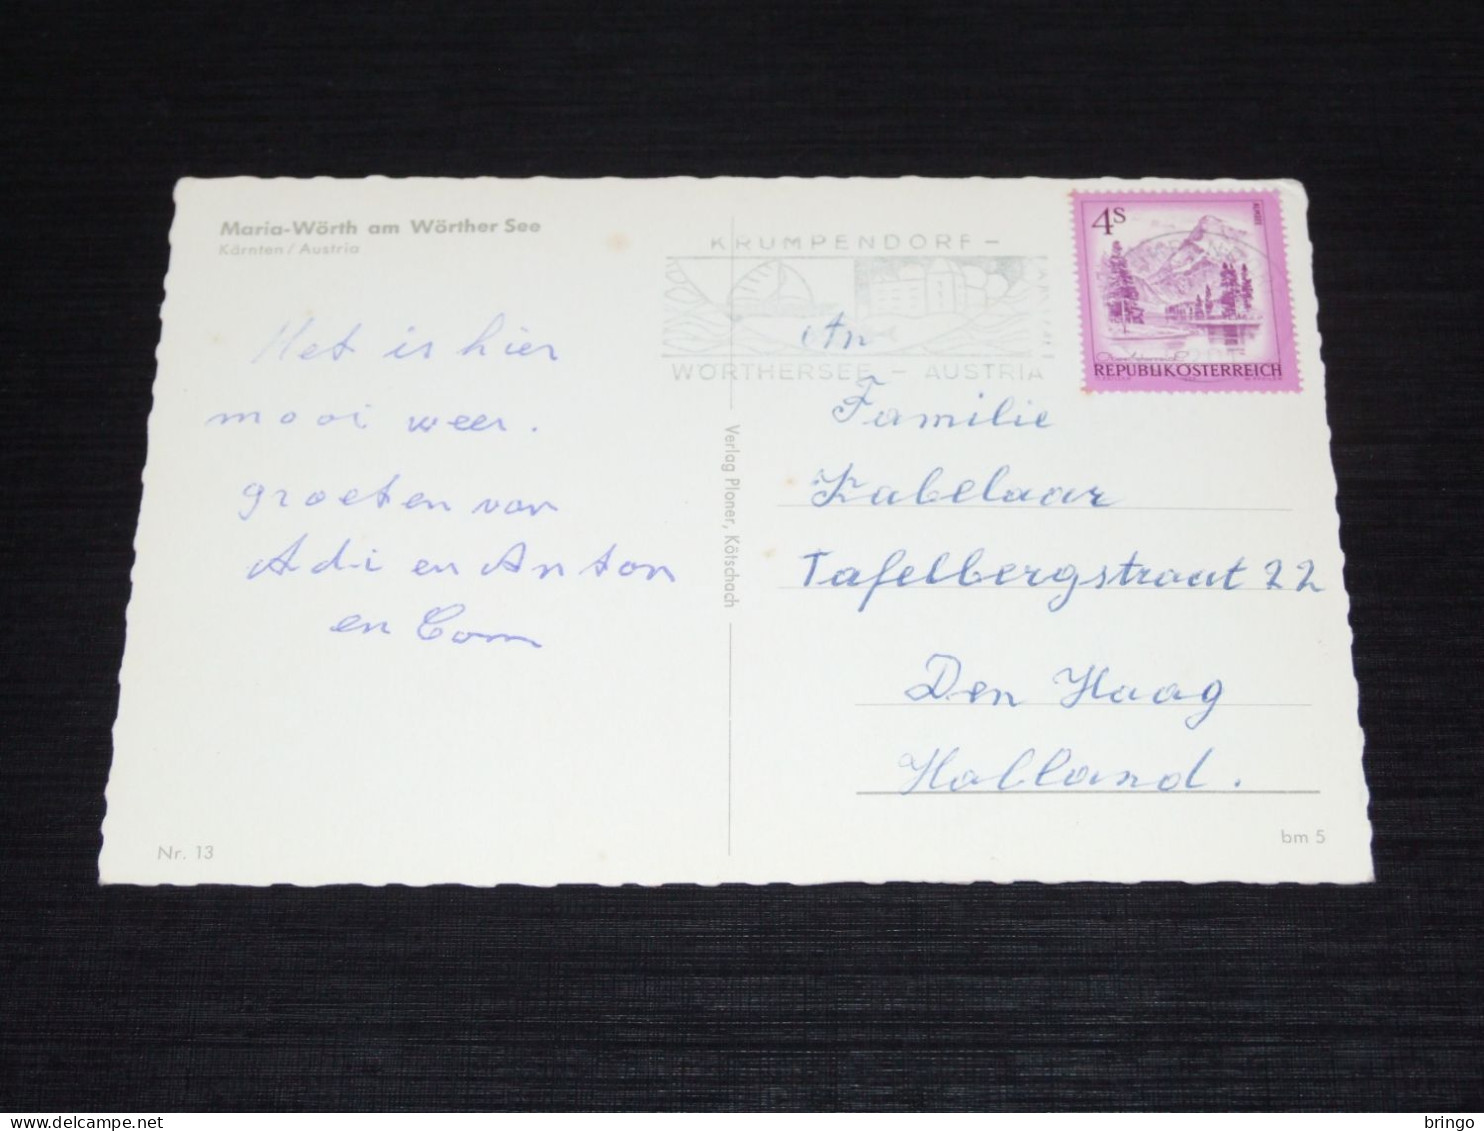 Maria-Wörth am Wörther See
Kärnten / Austria
Het is hier
mooi weer.
groeten van
Adi en Anton
en Com
Nr. 13
Verlag Ploner, Kötschach
KRUMPENDORF –
WÖRTHERSEE – AUSTRIA
4S
ALMSEE
REPUBLIK ÖSTERREICH
An
Familie
Kabelaar
Tafelbergstraat 22
Den Haag
Holland.
bm 5
bringo